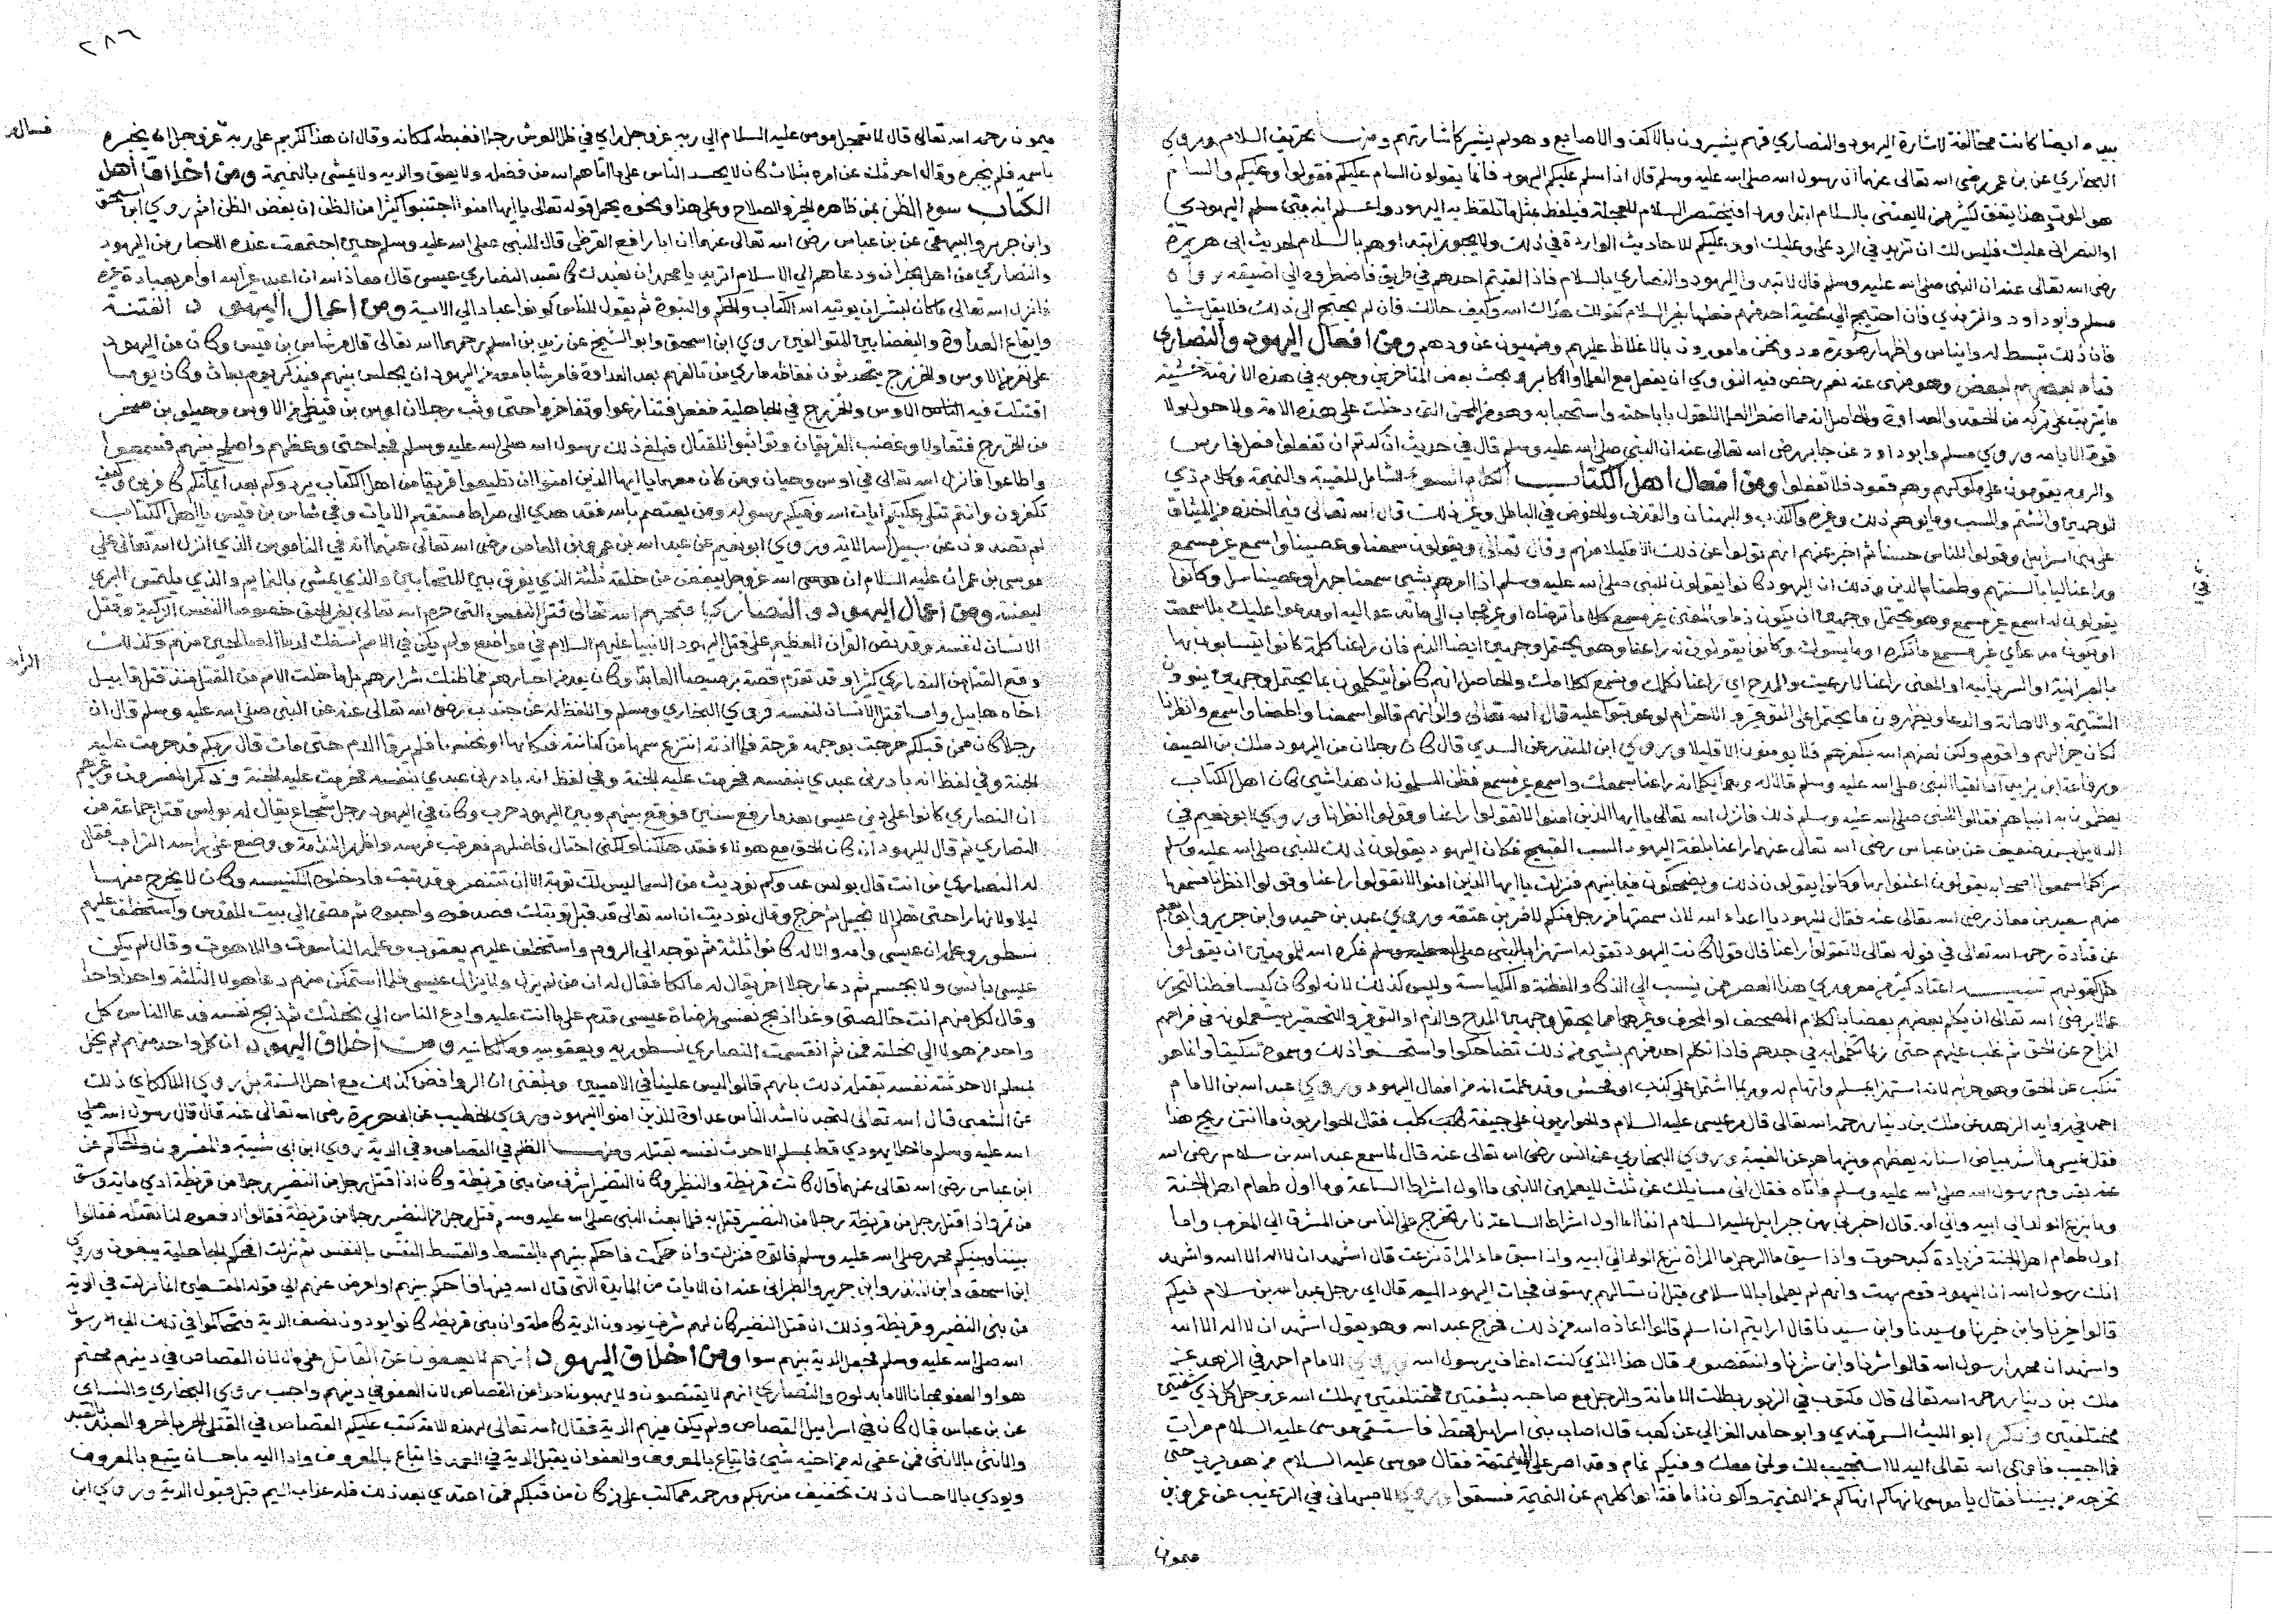 بيده ايضا كانت مخالفة لاشارة اليهود والنصاري فهم يشيرون بالاكف والاصابع وهو لم يشير كاشارتهم ومنها تحريف السلام وروي
البخاري عن بن عمر رضي الله تعالى عنهما ان رسول الله صلى الله عليه وسلم قال اذا سلم عليكم اليهود فانما يقولون السام عليكم فقولوا وعليكم والسام
هو الموت وهذا يتفق لكثير ممن لا يعتني بالسلام ابتدا وردا فيختصر السلام للعجلة فيلفظ بمثل ما تلفظ به اليهود واعلم انه متى سلم اليهودي
او النصراني عليك فليس لك ان تزيد في الرد على وعليك او وعليكم للاحاديث الواردة في ذلك ولا يجوز ابتداوهم بالسلام لحديث ابي هريرة
رضي الله تعالى عنه ان النبي صلى الله عليه وسلم قال لا تبدوا اليهود والنصاري بالسلام فاذا لقيتم احدهم في طريق فاضطروه الى اضيقه رواه
مسلم وابو داود والترمذي وان احتيج الي تحية احدهم فعلها بغير السلام كقولك هداك الله وكيف حالك فان لم يحتج الى ذلك فلا يقل شيا
فان ذلك تبسط له وايناس واظهار صورة ود ونحن مامورون بالاغلاظ عليهم ومنهيون عن ودهم ومن افعال اليهود والنصاري
قيام بعضهم لبعض وهو منهى عنه نعم رخص فيه النووي ان يفعل مع العلما والاكابر بحث بعض المتاخرين وجوبه في هذه الازمنة خشية
ما يترتب على تركه من الحقد والعداوة والحاصل انه مما اضطر العلما للقول باباحته واستحبابه وهو من المحن التي دخلت على هذه الامة ولا حول ولا
قوة الا بالله وروي مسلم وابو داود عن جابر رضي الله تعالى عنه ان النبي صلى الله عليه وسلم قال في حديث ان كدتم ان تفعلوا فعل فارس
والروم يقومون على ملوكهم وهم قعود فلا تفعلوا ومن افعال اهل الكتاب الكلام السوء الشامل للغيبة والنميمة وكلام ذي
الوجهين والشتم والسب وما يوهم ذلك وغيره والكذب والبهتان والقذف والخوض في الباطل وغير ذلك قال الله تعالى فيما اخذه من الميثاق
على بني اسرايل وقولوا للناس حسنا ثم اخبر عنهم انهم تولوا عن ذلك الا قليلا منهم وقال تعالى ويقولون سمعنا وعصينا واسمع غير مسمع
وراعنا ليا بالسنتهم وطعنا في الدين وذلك ان اليهود كانوا يقولون للنبي صلى الله عليه وسلم اذا امرهم بشي سمعنا جهرا وعصينا سرا وكانوا
يقولون له اسمع غير مسمع وهو يحتمل وجهين ان يكون ذما والمعنى غير مسمع كلاما ترضاه او غير مجاب الى ما تدعو اليه او مدعوا عليك بلا سمعت
او يكون مدحا اي غير مسمع ما تكره او ما يسوك وكانوا يقولون له راعنا وهو يحتمل وجهين ايضا الذم فان راعنا كلمة كانوا يتسابون بها
بالعبرانية او السريانية او المعنى راعنا لا رعيت والمدح اي راعنا نكلمك وتسمع لكلامك والحاصل انهم كانوا يتكلمون بما يحتمل وجهين ينوون
الشتيمة والاهانة والدعا ويظهرون ما يحتمل على التوقير والاحترام لو عوتبوا عليه قال الله تعالى ولو انهم قالوا سمعنا واطعنا واسمع وانظرنا
لكان خيرا لهم واقوم ولكن لعنهم الله بكفرهم فلا يومنون الا قليلا وروي ابن المنذر عن السدي قال كان رجلان من اليهود ملك بن الصيف
ورفاعة ابن يزيد اذا لقيا النبي صلى الله عليه وسلم قالا له وهما يكلمانه راعنا سمعك واسمع غير مسمع فظن المسلمون ان هذا شي كان اهل الكتاب
يعظمون به انبياهم فقالوا للنبي صلى الله عليه وسلم ذلك فانزل الله تعالى يا ايها الذين امنوا لا تقولوا راعنا وقولوا انظرنا وروي ابو نعيم في
الدلايل بسند ضعيف عن بن عباس رضي الله تعالى عنهما راعنا بلغة اليهود السب القبيح فكان اليهود يقولون ذلك للنبي صلى الله عليه وسلم
سرا فلما سمعوا اصحابه يقولون اعلنوا بها وكانوا يقولون ذلك ويضحكون فيما بينهم فنزلت يا ايها الذين امنوا لا تقولوا راعنا وقولوا انظرنا فسمعها
منهم سعد بن معاذ رضي الله تعالى عنه فقال لليهود يا اعداء الله لان سمعتها من رجل منكم لاضربن عنقه وروي عبد بن حميد وابن جرير وابو نعيم
عن قتادة رحمه الله تعالى في قوله تعالى لا تقولوا راعنا قال قولا كانت اليهود تقوله استهزا بالنبي صلى الله عليه وسلم فكره الله للمومنين ان يقولوا
مثل قولهم تنبيه اعتاد كثير من معمري هذا العصر ممن ينسب الي الذكا والفطنة والكياسة وليس كذلك لانه لو كان كيسا وطنا لتحرز
عما لا يرضي الله تعالى ان يكلم بعضهم بعضا بالكلام المصحف او المحرف وغيرهما مما يحتمل وجهين المدح والذم او التوقير والتحقير يستعملونه في مزاحهم
المزاح عن الحق ثم غلب عليهم حتى ربما تكلموا به في جدهم فاذا تكلم احد منهم بشي من ذلك تضاحكوا واستحسنوا ذلك وسموه تنكيتا وانما هو
تنكب عن الحق وهو حرام لانه استهزا بمسلم وايهام له وربما اشتمل على كذب او فحش وقد علمت انه من افعال اليهود وروي عبد الله بن الامام
احمد في زوايد الزهد عن ملك بن دينار رحمه الله تعالى قال مر عيسى عليه السلام والحواريون على جيفة كلب فقال الحواريون ما انتن ريح هذا
فقال عيسى ما اشد بياض اسنانه يعظهم وينهاهم عن الغيبة وروي البخاري عن انس رضي الله تعالى عنه قال لما سمع عبد الله بن سلام رضي الله
عنه بقدوم رسول الله صلى الله عليه وسلم فاتاه فقال اني سايلك عن ثلث لا يعلمهن الا نبي ما اول اشراط الساعة وما اول طعام اهل الجنة
وما ينزع الولد الي ابيه والي امه قال اخبرني بهن جبرايل عليه السلام انفا اما اول اشراط الساعة نار تخرج على الناس من المشرق الي المغرب واما
اول طعام اهل الجنة فزيادة كبد حوت واذا سبق ما الرجل ما المراة نزع الولد الي ابيه واذا سبق ماء المراة نزعت قال اشهد ان لا اله الا الله واشهد
انك رسول الله ان اليهود قوم بهت وانهم لم يعلموا باسلامي قبل ان تسالهم بهتوني فجات اليهود اليه قال اي رجل عبد الله بن سلام فيكم
قالوا خيرنا وابن خيرنا وسيدنا وابن سيدنا قال ارايتم ان اسلم قالوا اعاذه الله من ذلك فخرج عبد الله وهو يقول اشهد ان لا اله الا الله
واشهد ان محمدا رسول الله قالوا شرنا وابن شرنا وانتقصوه قال هذا الذي كنت اخاف يرسول الله وروي الامام احمد في الزهد عن
ملك بن دينار رحمه الله تعالى قال مكتوب في الزبور بطلت الامانة والرجل مع صاحبه بشفتين مختلفتين يهلك الله عز وجل كل ذي شفتين
مختلفتين وذكر ابو الليث السمرقندي وابو حامد الغزالي عن كعب قال اصاب بني اسرايل قحط فاستسقى موسى عليه السلام مرات
فما اجيب فاوحى الله تعالى اليه لا استجيب لك ولمن معك وفيكم نمام وقد اصر على النميمة فقال موسى عليه السلام من هو يرب حتى
نخرجه من بيننا فقال يا موسى انهاكم عن النميمة واكون نماما فتابوا كلهم عن النميمة فسقوا وروي الاصبهاني في الترغيب عن عمرو بن
ميمون
في
٢٨٦
ميمون رحمه الله تعالى قال لما تعجل موسى عليه السلام الي ربه عز وجل راى في ظل العرش رجلا فغبطه لمكانه وقال ان هذا لكريم على ربه عز وجل ان يخبره
باسمه فلم يخبره وقال احدثك عن امره بثلاث كان لا يحسد الناس على ما اتاهم الله من فضله ولا يعق والديه ولا يمشي بالنميمة ومن اخلاق اهل
الكتاب سوء الظن بمن ظاهره الخير والصلاح وعلى هذا ونحوه يحمل قوله تعالى يا ايها امنوا اجتنبوا كثيرا من الظن ان بعض الظن اثم روي ابن اسحق
وابن جرير والبيهقي عن بن عباس رضي الله تعالى عنهما ان ابا رافع القرظي قال للنبي صلى الله عليه وسلم حين اجتمعت عنده الاحبار من اليهود
والنصاري من اهل نجران ودعاهم الي الاسلام اتريد يا محمد ان نعبدك كما تعبد النصاري عيسى قال معاذ الله ان اعبد غير الله او امر بعبادة غيره
فانزل الله تعالى ما كان لبشر ان يوتيه الله الكتاب والحكم والنبوة ثم يقول للناس كونوا عبادا لي الاية ومن اعمال اليهود الفتنة
وايقاع العداوة والبغضا بين المتوالفين روي ابن اسحق وابو الشيخ عن زيد بن اسلم رحمهما الله تعالى قال مر شاس بن قيس وكان من اليهود
على نفر من الاوس والخزرج يتحدثون فغاظه ما راي من تالفهم بعد العداوة فامر شابا معه من اليهود ان يجلس بينهم فيذكر يوم بعاث وكان يوما
اقتتلت فيه الناس الاوس والخزرج في الجاهلية ففعل فتنازعوا وتفاخروا حتى وثب رجلان اوس بن قيظي من الاوس وجبار بن صخر
من الخزرج فتقاولا وغضب الفريقان وتواثبوا للقتال فبلغ ذلك رسول الله صلى الله عليه وسلم فجاء حتى وعظهم واصلح بينهم فسمعوا
واطاعوا فانزل الله تعالى في اوس وجبار ومن كان معهما يا ايها الذين امنوا ان تطيعوا فريقا من اهل الكتاب يردوكم بعد ايمانكم كافرين وكيف
تكفرون وانتم تتلى عليكم ايات الله وفيكم رسوله ومن يعتصم بالله فقد هدي الى صراط مستقيم الايات وفي شاس بن قيس يا اهل الكتاب
لم تصدون عن سبيل الله الاية وروي ابو نعيم عن عبد الله بن عمرو بن العاص رضي الله تعالى عنهما انه في الناموس الذي انزل الله تعالى على
موسى بن عمران عليه السلام ان الله عز وجل يبغض من خلقه ثلثة الذي يفرق بين المتحابين والذي يمشي بالنمايم والذي يلتمس البري
ليعنته ومن اعمال اليهود والنصاري قتل النفس التي حرم الله تعالى بغير الحق خصوصا النفس الزكية وقتل
الانسان لنفسه وقد نص القران العظيم على قتل اليهود الانبيا عليهم السلام في مواضع ولم يكن في الامم اسفك لدماء الصالحين منهم وكذلك
وقع القتل من النصاري كثيرا وقد تقدم قصة برصيصا العابد وكان يعد من اخيارهم فما ظنك بشرارهم بل ما خلت الامم من القتل منذ قتل قابيل
اخاه هابيل واما قتل الانسان لنفسه فروي البخاري ومسلم واللفظ له عن جندب رضي الله تعالى عنه عن النبي صلى الله عليه وسلم قال ان
رجلا كان ممن قبلكم خرجت بوجهه قرحة فلما اذته انتزع سهما من كنانته فنكاها فلم يرقا الدم حتى مات قال ربكم قد حرمت عليه
الجنة وفي لفظ انه بادرني عبدي بنفسه فحرمت عليه الجنة وفي لفظ انه بادرني عبدي بنفسه فحرمت عليه الجنة وذكر المفسرون وغيرهم
ان النصاري كانوا على دين عيسى بعد ما رفع سنين فوقع بينهم وبين اليهود حرب وكان في اليهود رجل شجاع يقال له بولس قتل جماعة من
النصاري ثم قال لليهود ان كان الحق مع هولاء فقد هلكنا ولكني احتال فاضلهم فعرقب فرسه واظهر الندامة ووضع على راسه التراب فقال
له النصاري من انت قال بولس عدوكم نوديت من السما ليس لك توبة الا ان تتنصر وقد تبت فادخلوه الكنيسه وكان لا يخرج منها
ليلا ولا نهارا حتى تعلم الانجيل ثم خرج وقال نوديت ان الله تعالى قد قبل توبتك فصدقوه واحبوه ثم مضى الى بيت المقدس واستخلف عليهم
نسطور وعلمه ان عيسى وامه والاله كانوا ثلثة ثم توجه الى الروم واستخلف عليهم يعقوب وعلمه الناسوت واللاهوت وقال لم يكن
عيسى بانس ولا بجسم ثم دعا رجلا اخر يقال له ملكا فقال له ان من لم يزل ولا يزال عيسى فلما استمكن منهم دعا هولا الثلثة واحدا واحدا
وقال لكل منهم انت خالصتي وغدا اذبح نفسي لمرضاة عيسى فدم على ما انت عليه وادع الناس الي نحلتك ثم ذبح نفسه فدعا الناس كل
واحد من هولا الي نحلته فمن ثم انقسمت النصاري نسطوريه ويعقوبيه وملكانيه ومن اخلاق اليهود ان كل واحد منهم لم يخل
بمسلم الا حدثته نفسه بقتله ذلك بانهم قالوا ليس علينا في الاميين وبلغني ان الروافض كذلك مع اهل السنة بل روي اللالكاي ذلك
عن الشعبي قال الله تعالى لتجدن اشد الناس عداوة للذين امنوا اليهود وروي الخطيب عن ابي هريرة رضي الله تعالى عنه قال قال رسول الله صلى
الله عليه وسلم ما خلا يهودي قط بمسلم الا حدث نفسه بقتله ومنها الظلم في القصاص وفي الدية روي ابن ابي شيبة والمفسرون والحاكم عن
ابن عباس رضي الله تعالى عنهما قال كانت قريظة والنظير وكان النضير اشرف من بني قريظة وكان اذا قتل رجل من النضير رجلا من قريظة ادي ماية وسق
من تمر واذا قتل رجل من قريظة رجلا من النضير قتل به فلما بعث النبي صلى الله عليه وسلم قتل رجل من النضير رجلا من قريظة فقالوا ادفعوه لنا نقتله فقالوا
بيننا وبينكم محمد صلى الله عليه وسلم فاتوه فنزلت وان حكمت فاحكم بينهم بالقسط والقسط النفس بالنفس ثم نزلت افحكم الجاهلية يبغون وروي
ابن اسحق وابن المنذر وابن جرير والطبراني عنه ان الايات من المايدة التي قال الله فيها فاحكم بينهم او اعرض عنهم الي قوله المقسطين انما نزلت في الدية
من بني النضير وقريظة وذلك ان قتلى النضير كان لهم شرف يودون الدية كاملة وان بني قريظة كانوا يودون نصف الدية فتحاكموا في ذلك الي الرسول
الله صلى الله عليه وسلم فجعل الدية بينهم سوا ومن اخلاق اليهود انهم لا يعفون عن القاتل لان القصاص في دينهم محتم
هو او العفو مجانا لا ما يدلوه والنصاري انهم لا يقتصون ولا يهبون احدا عن القصاص لان العفو في دينهم واجب روي البخاري والنساى
عن بن عباس قال كان في اسرايل القصاص ولم يكن فيهم الدية فقال الله تعالى لهذه الامة كتب عليكم القصاص في القتلى الحر بالحر والعبد بالعبد
والانثى بالانثى فمن عفي له من اخيه شي فاتباع بالمعروف والعفو ان يقبل الدية في العمد فاتباع بالمعروف واداء اليه باحسان يتبع بالمعروف
ويودي بالاحسان ذلك تخفيف من ربكم ورحمة مما كتب على من كان من قبلكم فمن اعتدي بعد ذلك فله عذاب اليم قتل بعد قبول الدية وروي ابن